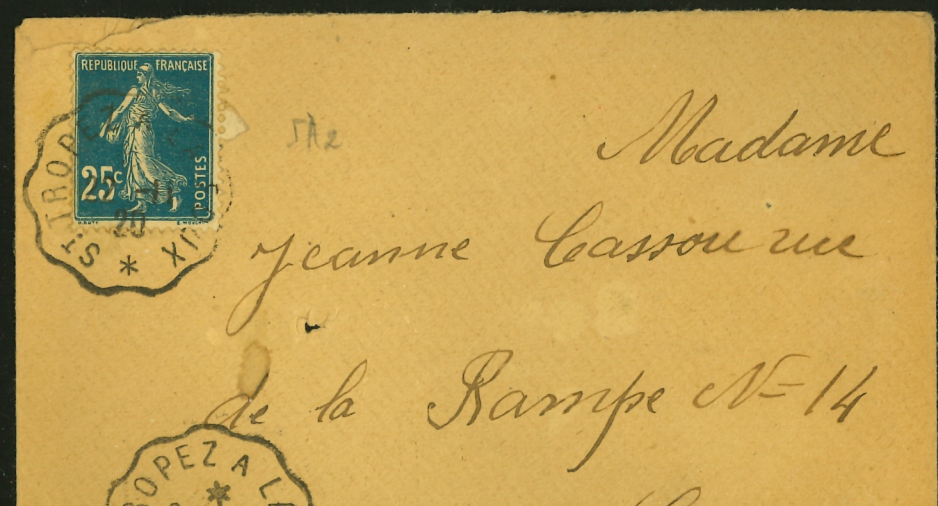 REPUBLIQUE FRANÇAISE
25c
POSTES
ST TROPEZ
20
Madame
Jeanne Cassou rue
de la Rampe N= 14
OPEZ A LA